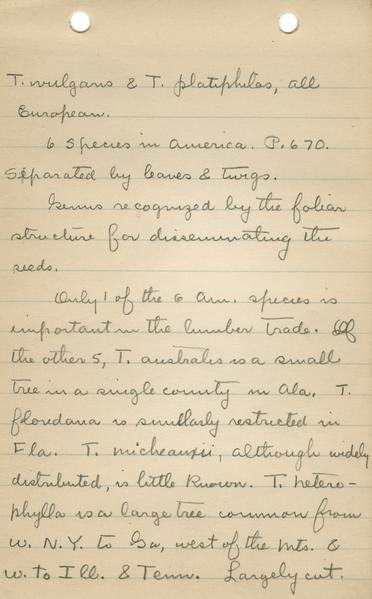 T. vulgaris & T. platiphilos, all
European.
6 species in America. P. 670.
Separated by leaves & twigs.
Genus recognized by the foliar
structure for disseminating the
seeds.
Only 1 of the 6 Am. species is
important in the lumber trade. Of
the other 5, T. australis is a small
tree in a single county in Ala. T.
floridana is similarly restricted in
Fla. T. micheauxii, although widely
distributed, is little known. T. hetero-
phylla is a large tree common from
w. N.Y. to Ga, west of the mts. &
w. to Ill. & Tenn. Largely cut.